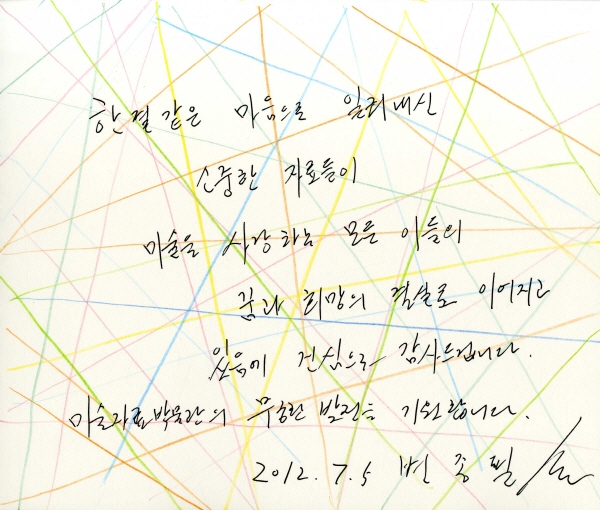 한결같은 마음으로 일궈내신
소중한 자료들이
미술을 사랑하는 모든 이들의
꿈과 희망의 결실로 이어지고
있음에 진심으로 감사드립니다.
미술자료박물관의 무한한 발전을 기원합니다.
2012.7.5 변종필